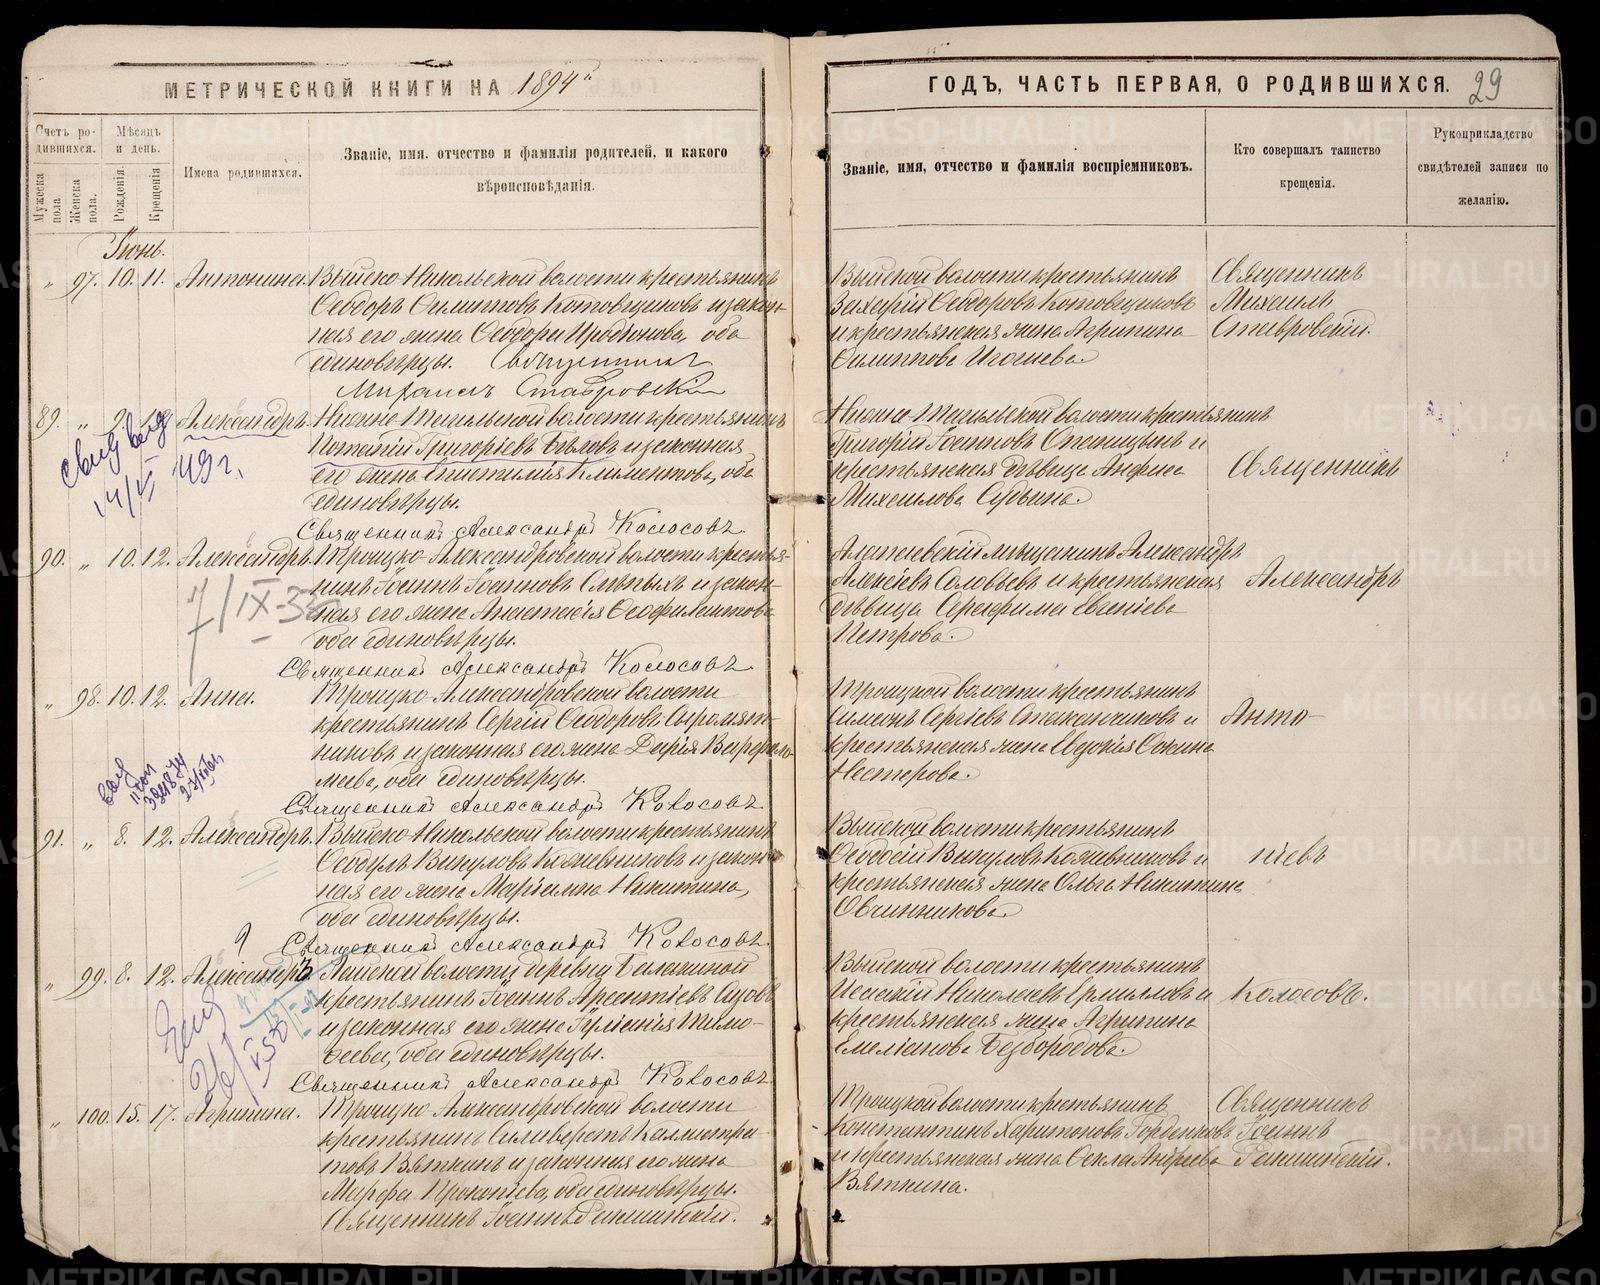 МЕТРИЧЕСКОЙ КНИГИ НА 1894й
Счетъ родившихся.
Мѣсяцъ и день.
Имена родившихся.
Званіе, имя, отчество и фамилія родителей, и какого
вѣроисповѣданія.
Мужеска пола
Женска пола.
Рожденія.
Крещенія
Іюнь.
" 97. 10. 11. Антонина. Выйско-Никольской волости крестьянинъ
Ѳеодоръ Филипповъ Котовщиковъ и закон-
ная его жена Ѳеодора Иродіонова, оба
единовѣрцы. Священникъ
Михаилъ Ставровскій
89. " 9. Александръ. Нижне-Тагильской волости крестьянинъ
Потапій Григоріевъ Бѣловъ и законная
его жена Климентова, оба
единовѣрцы.
14/VI 49 г.
Священникъ Александръ Колосовъ
90. " 10. 12. Александръ. Троицко-Александровской волости крестья-
нинъ Іоаннъ Іоанновъ Слѣпыхъ и закон-
ная его жена Анастасія Ѳеофилактова
оба единовѣрцы.
7/IX-35
Священникъ Александръ Колосовъ
" 98. 10. 12. Анна. Троицко-Александровской волости
крестьянинъ Сергій Ѳеодоровъ Сыромят-
никовъ и законная его жена Дарія Варѳоло-
меева, оба единовѣрцы.
Священникъ Александръ Колосовъ
91. " 8. 12. Александръ. Выйско-Никольской волости крестьянинъ
Ѳеодулъ Викуловъ Кожевниковъ и закон-
ная его жена Маріамна Никитина,
оба единовѣрцы.
Священникъ Александръ Колосовъ
" 99. 8. 12. Александръ Лайской волости деревни Балакиной
крестьянинъ Іоаннъ Арсентіевъ
и законная его жена Іуліанія Тимо-
ѳеева, оба единовѣрцы.
Священникъ Александръ Колосовъ
" 100. 15. 17. Агрипина. Троицко-Александровской волости
крестьянинъ Силиверстъ Каллистра-
товъ Вяткинъ и законная его жена
Марфа Прокопіева, оба единовѣрцы.
Священникъ Іоаннъ
ГОДЪ, ЧАСТЬ ПЕРВАЯ, О РОДИВШИХСЯ. 29
Званіе, имя, отчество и фамилія воспріемниковъ.
Кто совершалъ таинство
крещенія.
Рукоприкладство
свидѣтелей записи по
желанію.
Выйской волости крестьянинъ
Захарій Ѳеодоровъ Котовщиковъ
и крестьянская жена Агрипина
Филиппова
Священникъ
Михаилъ
Ставровскій.
Нижне-Тагильской волости крестьянинъ
Григорій Іоанновъ и
крестьянская дѣвица Анфиса
Михаилова
Священникъ
Алапаевскій мѣщанинъ Александръ
Алексіевъ Соловьевъ и крестьянская
дѣвица Серафима
Петрова.
Александръ
Троицкой волости крестьянинъ
Симеонъ Сергіевъ Стаканчиковъ и
крестьянская жена Евдокія
Нестерова.
Анто-
Выйской волости крестьянинъ
Ѳеодосій Викуловъ Кожевниковъ и
крестьянская жена Ольга Никитина
Овчинникова
ніевъ
Выйской волости крестьянинъ
Николаевъ Ермиловъ и
крестьянская жена Агрипина
Емеліанова Безбородова.
Колосовъ.
Троицкой волости крестьянинъ
Константинъ Харитоновъ Горденковъ
и крестьянская жена Ѳекла Андреева
Вяткина.
Священникъ
Іоаннъ
METRIKI.GASO-URAL.RU